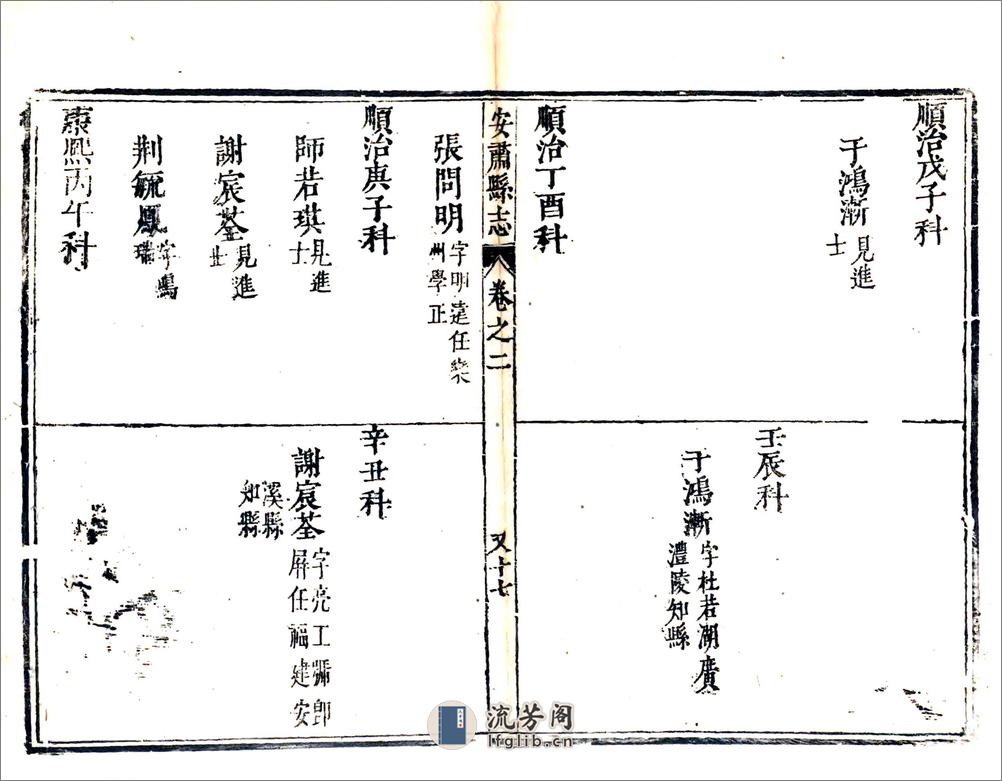 順治戊子科
于鴻漸
見進
士
順治丁酉科
壬辰科
于鴻漸
字杜若湖廣
澧陵知縣
安肅縣志
卷之二
又十七
張問明
字明達任欒
州學正
順治庚子科
師若琪
見進
士
謝宸荃
見進
士
荆毓鳳
字鳴
瑞
康熙丙午科
辛丑科
謝宸荃
字亮工彌卽
屏任福建安
溪縣
知縣
流芳阁
lfglib.cn